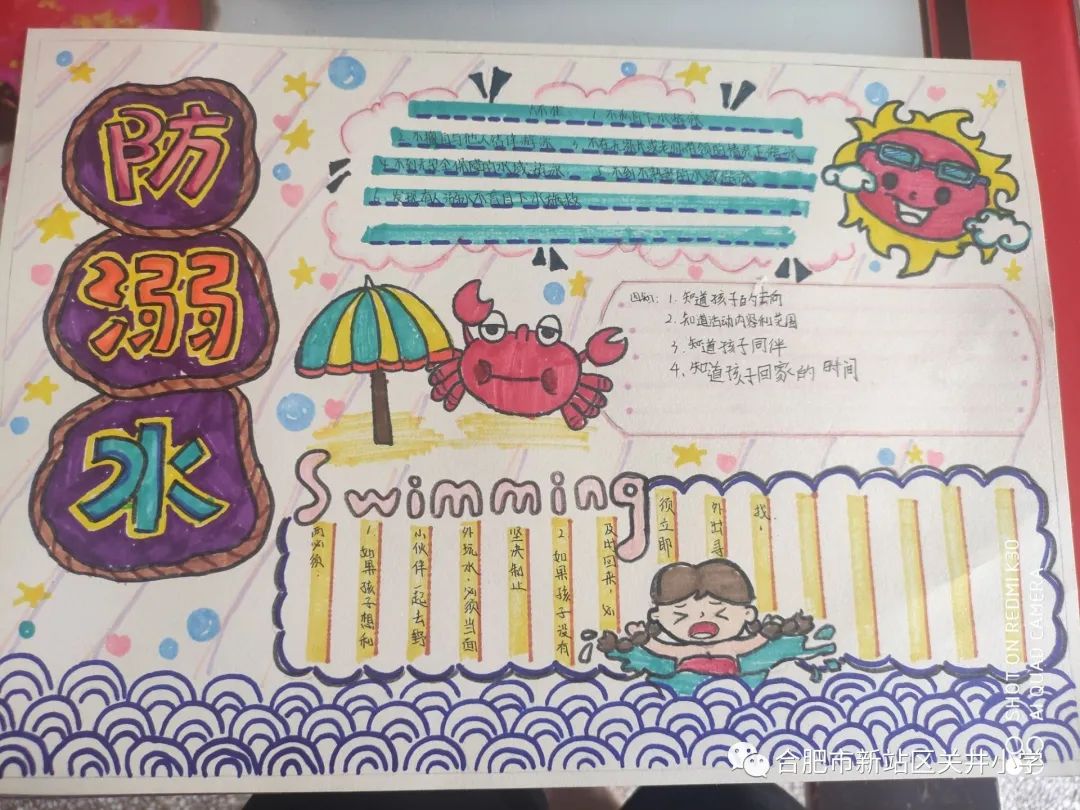 防
溺
水
六不准 1.不私自下水游泳
2.不擅自与他人结伴游泳 3.不在无家长或老师带领的情况下游泳
4.不到无安全保障的水域游泳 5.不到不熟悉的水域游泳
6.发现有人溺水不盲目下水施救
四知:1.知道孩子的去向
2.知道活动内容和范围
3.知道孩子同伴
4.知道孩子回家的时间
Swimming
两必须:
1.如果孩子想和
小伙伴一起去野
外玩水,必须当面
坚决制止
2.如果孩子没有
及时回来,必
须立即
外出寻
找。
SHOT ON REDMI K30
AI QUAD CAMERA
合肥市新站区关井小学